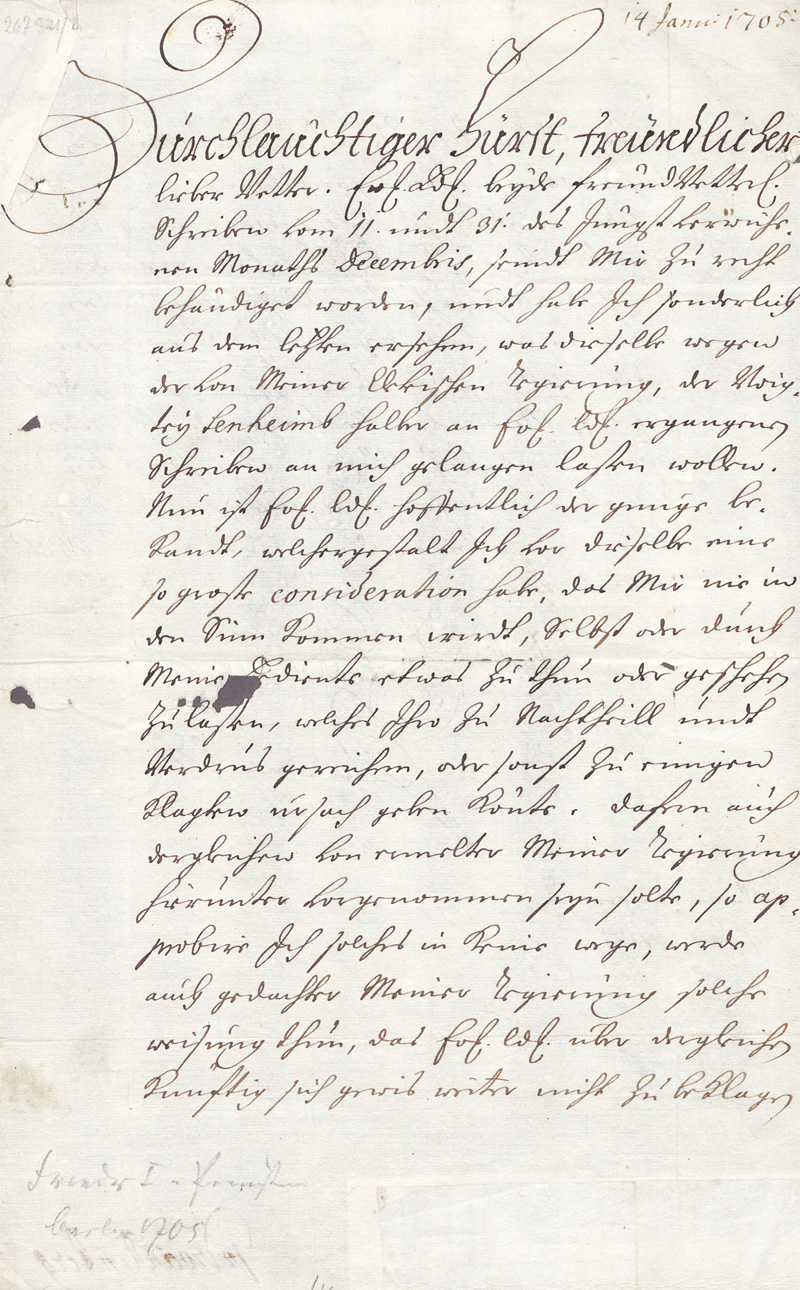 14 Janu: 1705:
Durchlauchtiger Fürst, freündlicher
lieber Vetter. Ew. Ld. beyde freundVetterl.
Schreiben vom 11. undt 31. des Jüngst verwiche-
nen Monahts Decembris, seindt Mir zu recht
behändiget worden, undt habe Ich sonderlich
aus dem letzten ersehen, was dieselbe wegen
der von Meiner Regierung, der Voig-
tey Senheimb halber an Ew. Ld. ergangenen
Schreiben an mich gelangen laßen wollen.
Nun ist Ew. Ld. hoffentlich der genüge be-
kandt, welchergestalt Ich vor dieselbe eine
so große consideration habe, das Mir nie in
den Sinn kommen wirdt, Selbst oder durch
Meine Bediente etwas zu thun oder geschehen
zulaßen, welches Ihro zu Nachtheill undt
Verdrus gereichen, oder sonst zu einigen
Klagten ursach geben könte. Dafern auch
dergleichen von ermelter Meiner Regierung
hierunter vorgenommen seyn solte, so ap-
probire Ich solches in keine wege, werde
auch gedachter Meiner Regierung solche
weisung thun, das Ew. Ld. über dergleichen
künftig sich gewis weiter nicht zu beklagen
Friedr I v Preußen
Berlin 1705